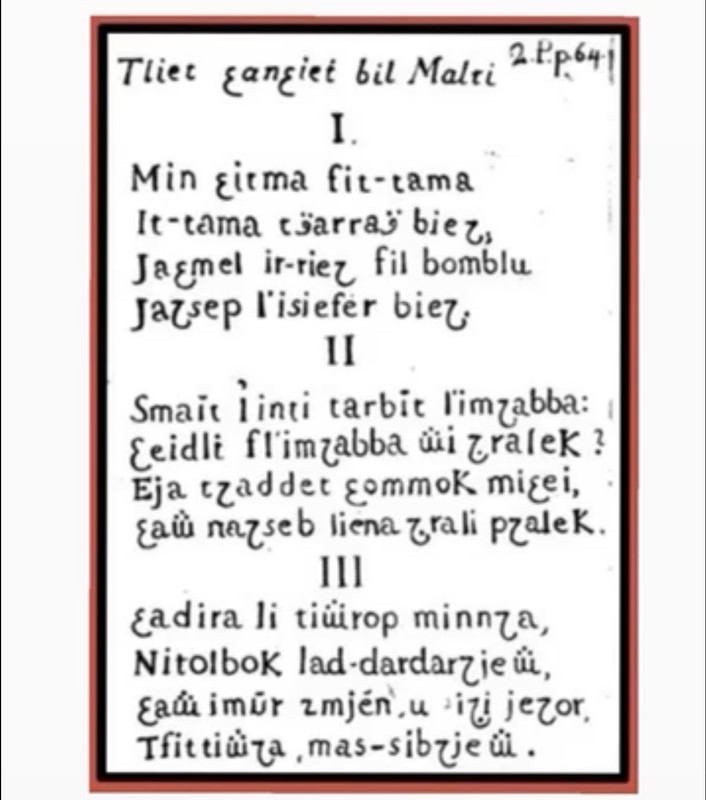 Tliet ɛanɛiet bil Malti 2.P.p.64
I.
Min ɛitma fit-tama
It-tama ts̈arras̈ bieɀ,
Jaɛmel ir-rieɀ fil bomblu
Jaɀsep l'isiefer bieɀ.
II
Smajt l inti tarbit l'imɀabba:
Ɛeidli fl'imɀabba ẅi ɀralek ?
Eja tɀaddet ɛommok miɛei,
ɛaẅ naɀseb liena ɀrali pɀalek.
III
Ɛadira li tiẅirop minnɀa,
Nitolbok lad-dardarɀjeẅ,
ɛaẅ imūr zmjén, u iɀi jeɀor,
Tfittiẅɀa ,mas-sibɀjeẅ .